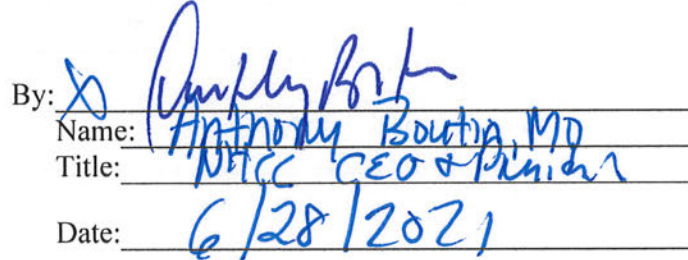 By: X
Name: Anthony Boutin, MD
Title: NHCC CEO &
Date: 6/28/2021